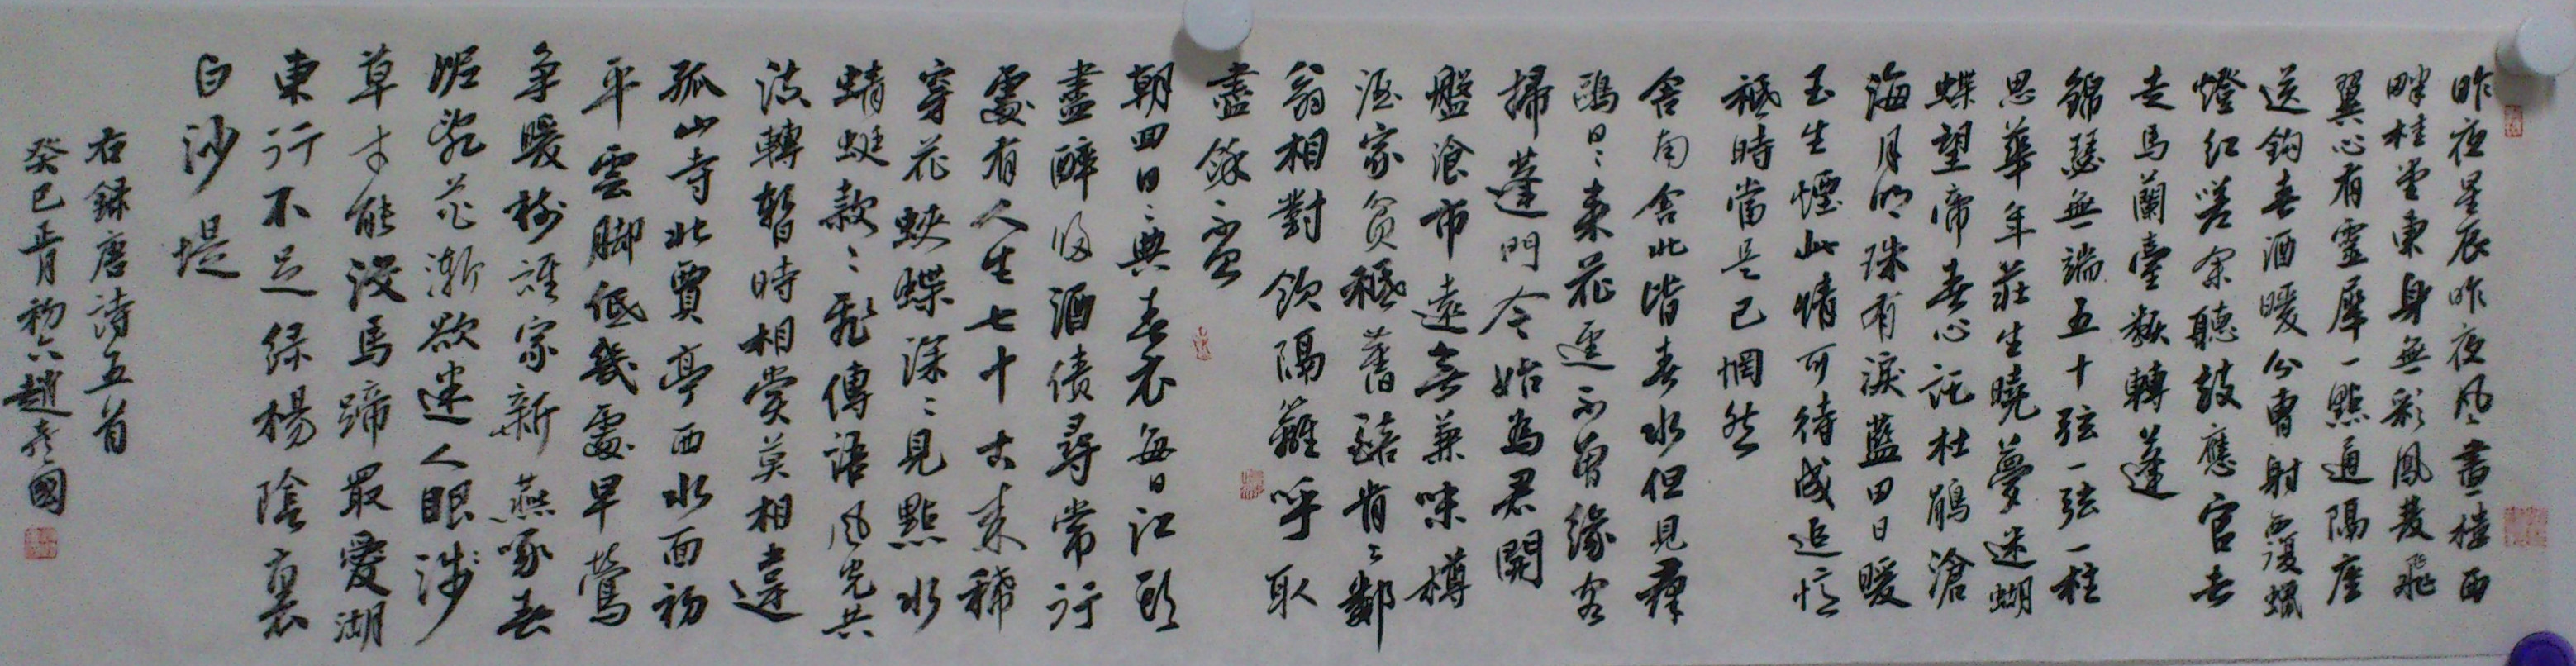 昨夜星辰昨夜風畫樓西
畔桂堂東身無彩鳳雙飛
翼心有靈犀一點通隔座
送鈎春酒暖分曹射覆蠟
燈紅嗟余聽鼓應官去
走馬蘭臺類轉蓬
錦瑟無端五十弦一弦一柱
思華年莊生曉夢迷蝴
蝶望帝春心託杜鵑滄
海月明珠有淚藍田日暖
玉生煙此情可待成追憶
祗時當是已惘然
舍南舍北皆春水但見群
鷗日〻來花逕不曾緣客
掃蓬門今始為君開
盤飧市遠無兼味樽
酒家貧祗舊醅肯〻鄰
翁相對飲隔籬呼取
盡餘盃
朝回日〻典春衣每日江頭
盡醉歸酒債尋常行
處有人生七十古來稀
穿花蛺蝶深〻見點水
蜻蜓款〻飛傳語風光共
流轉暫時相賞莫相違
孤山寺北賈亭西水面初
平雲腳低幾處早鶯
爭暖樹誰家新燕啄春
泥亂花漸欲迷人眼淺
草才能沒馬蹄最愛湖
東行不足綠楊陰裏
白沙堤
右錄唐詩五首
癸巳正月初六趙國